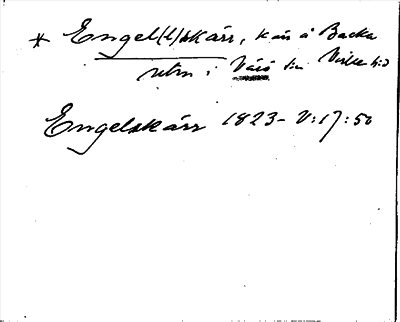 * Engel(s)kärr, kärr å Backa
utm i Värö sn Viske hd
Engelskärr 1823- V:17:50